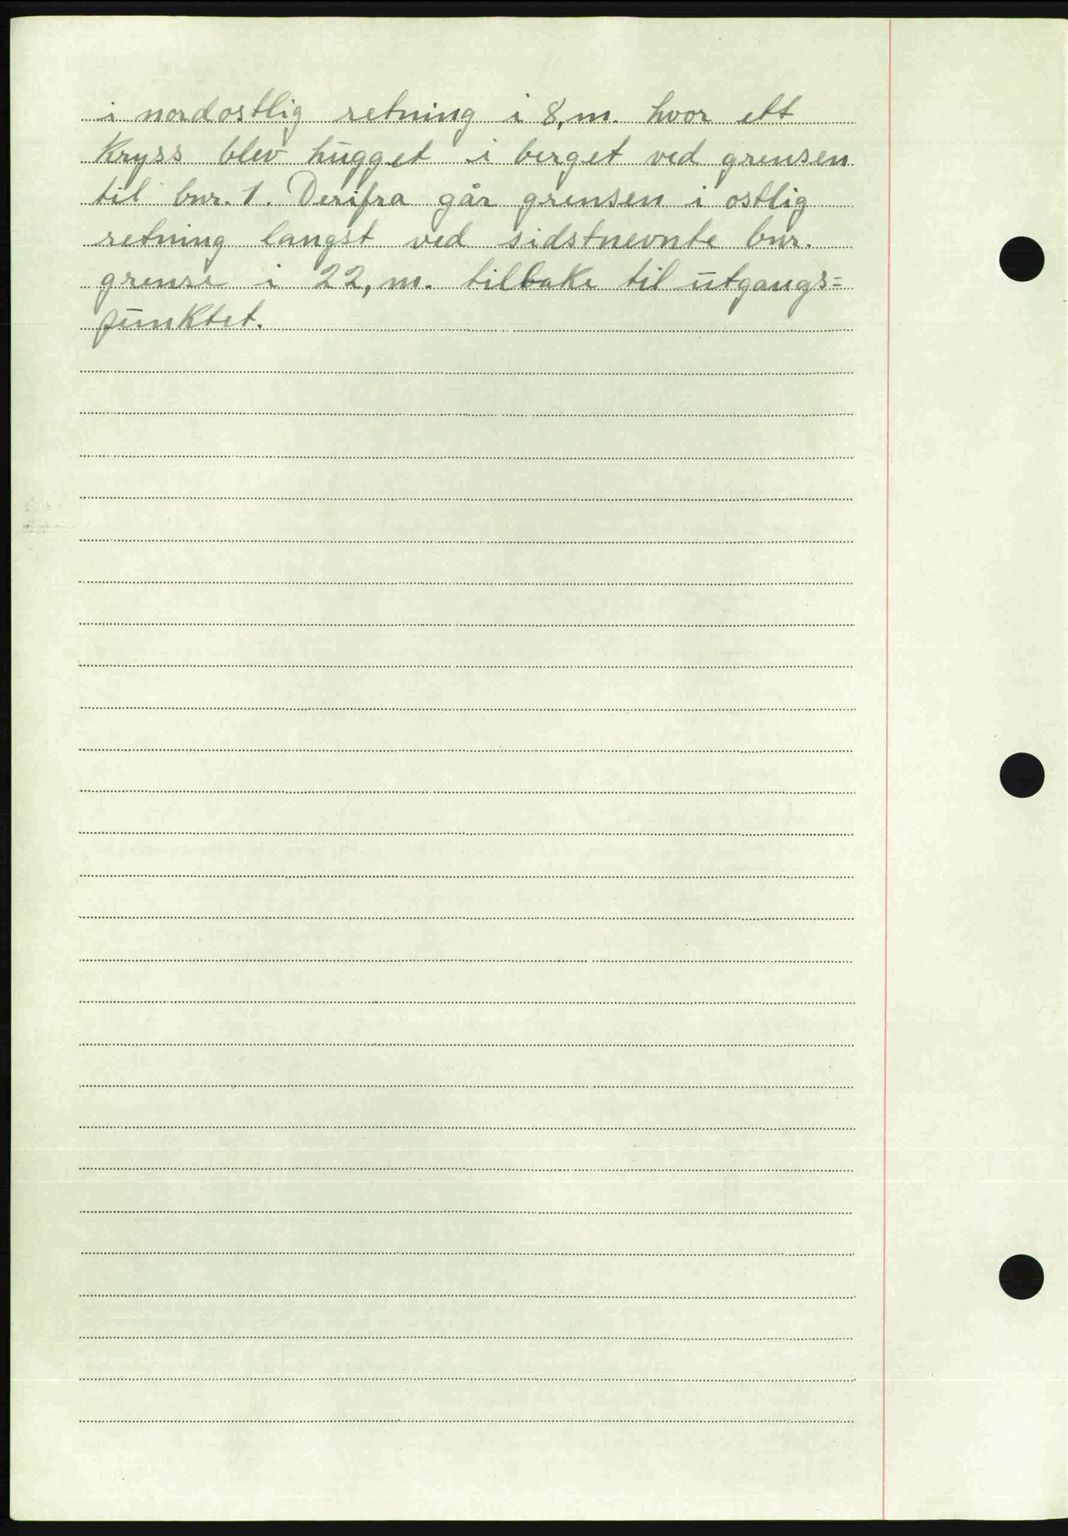 i nordostlig retning i 8,m. hvor ett
Kryss blev hugget i berget ved grensen
til bnr. 1. Derifra går grensen i ostlig
retning langst ved sidstnevnte bnr.
grense i 22,m. tilbake til utgangs=
punktet.